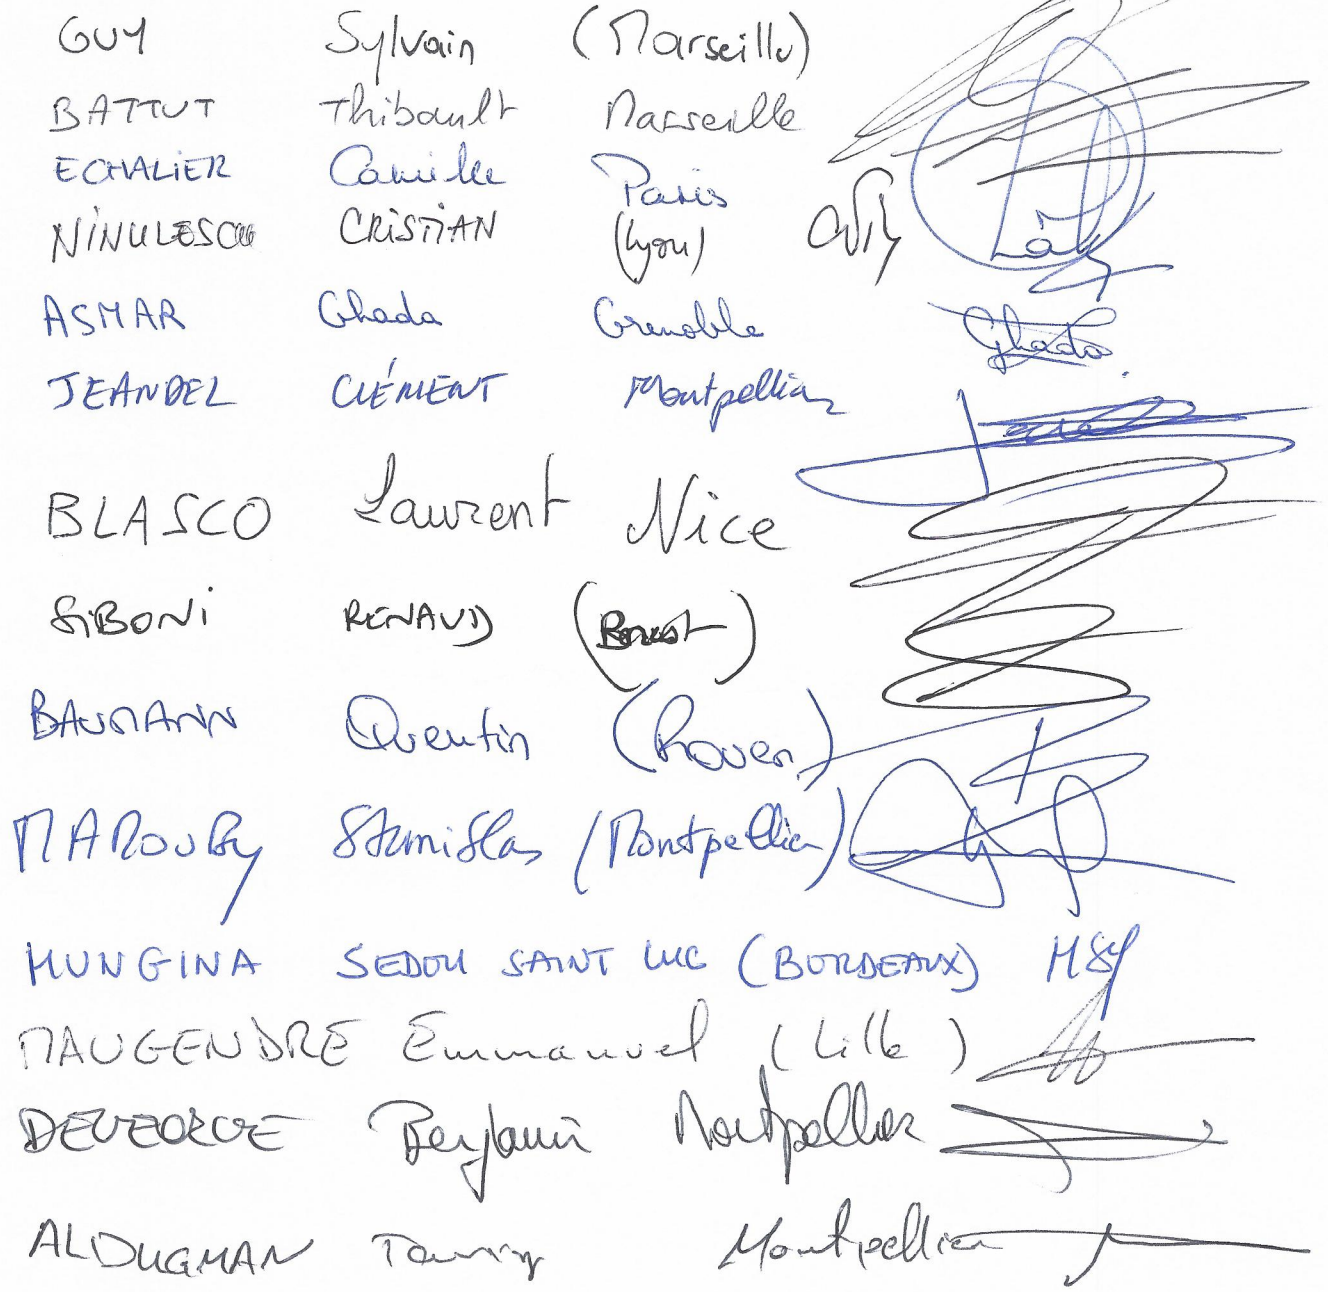 GUY Sylvain (Marseille)
BATTUT Thibault Marseille
ECHALIER Camille Paris
NINULESCU CRISTIAN (Lyon)
ASMAR Ghada Grenoble Ghada
JEANDEL CLÉMENT Montpellier
BLASCO Laurent Nice
SIBONI RENAUD (Brest)
BAUMANN Quentin (Rouen)
MAROUBY Stanislas (Montpellier)
MUNGINA SEDOU SAINT LUC (BORDEAUX) MSY
MAUGENDRE Emmanuel (Lille)
Benjamin Montpellier
ALDUGMAN Montpellier